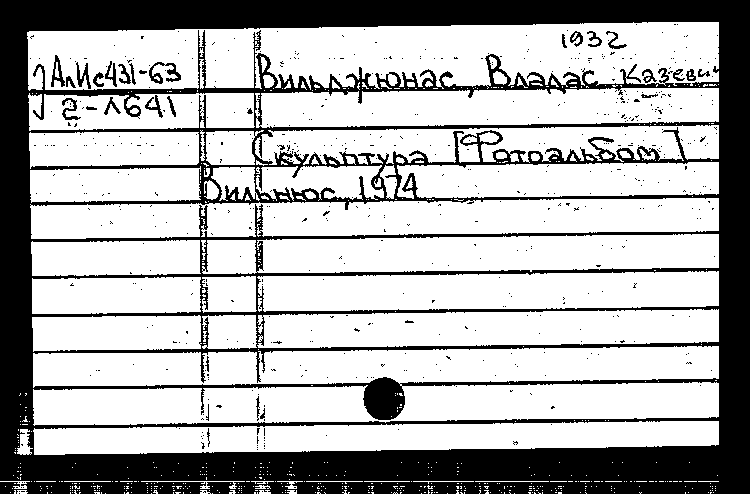 1932
АлИс431-63 Вильджюнас, Владас Казеви
2-Л641
Скульптура [Фотоальбом]
Вильнюс, 1974